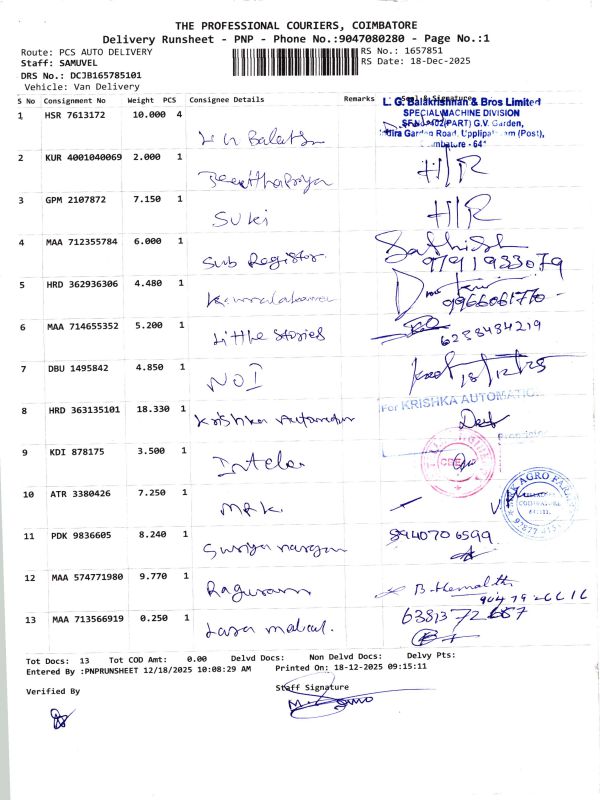 THE PROFESSIONAL COURIERS, COIMBATORE
Delivery Runsheet - PNP - Phone No.:9047080280 - Page No.:1
Route: PCS AUTO DELIVERY
RS No.: 1657851
Staff: SAMUVEL
RS Date: 18-Dec-2025
DRS No.: DCJB165785101
Vehicle: Van Delivery
S No Consignment No Weight PCS Consignee Details Remarks Seal & Signature
L. G. Balakrishnan & Bros Limited
SPECIAL MACHINE DIVISION
(PART) G.V. Garden,
Indira Garden Road, Uppilipalayam (Post),
1 HSR 7613172 10.000 4
2 KUR 4001040069 2.000 1 H/R
3 GPM 2107872 7.150 1 Suki H/R
4 MAA 712355784 6.000 1 Sub Registor Sathish
9791933079
5 HRD 362936306 4.480 1
9966061770
6 MAA 714655352 5.200 1 Little Stories
6288484219
7 DBU 1495842 4.850 1 NOI 18/12/25
8 HRD 363135101 18.330 1 Krishka Automation
For KRISHKA AUTOMATIC
9 KDI 878175 3.500 1
10 ATR 3380426 7.250 1 MRK
AGRO FARM
COIMBATORE
11 PDK 9836605 8.240 1 Suriya narayan 8940706599
12 MAA 574771980 9.770 1 Raguram B. Hemalatha
13 MAA 713566919 0.250 1
Tot Docs: 13 Tot COD Amt: 0.00 Delvd Docs: Non Delvd Docs: Delvy Pts:
Entered By :PNPRUNSHEET 12/18/2025 10:08:29 AM Printed On: 18-12-2025 09:15:11
Verified By
Staff Signature